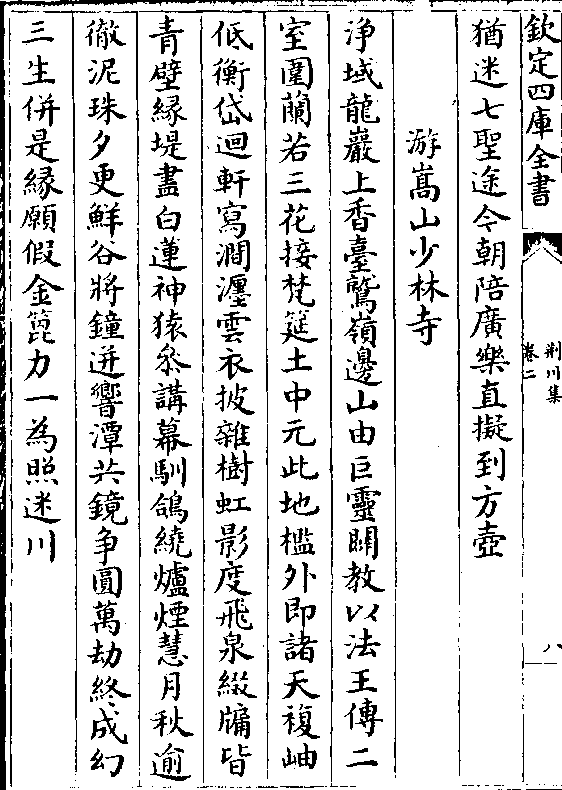 欽定四庫全書
荆川集
卷二
八
猶迷七聖途今朝陪廣樂直擬到方壺
游嵩山少林寺
淨域龍巖上香臺鷲嶺邊山由巨靈闢教以法王傳二
室圍蘭若三花接梵筵土中元此地檻外即諸天複岫
低衡岱迴軒寫澗瀍雲衣披雜樹虹影度飛泉綴牗皆
青壁緣堤盡白蓮神猿叅講幕馴鴿繞爐煙慧月秋逾
徹泥珠夕更鮮谷將鐘迸響潭共鏡争圓萬劫終成幻
三生併是緣願假金篦力一為照迷川